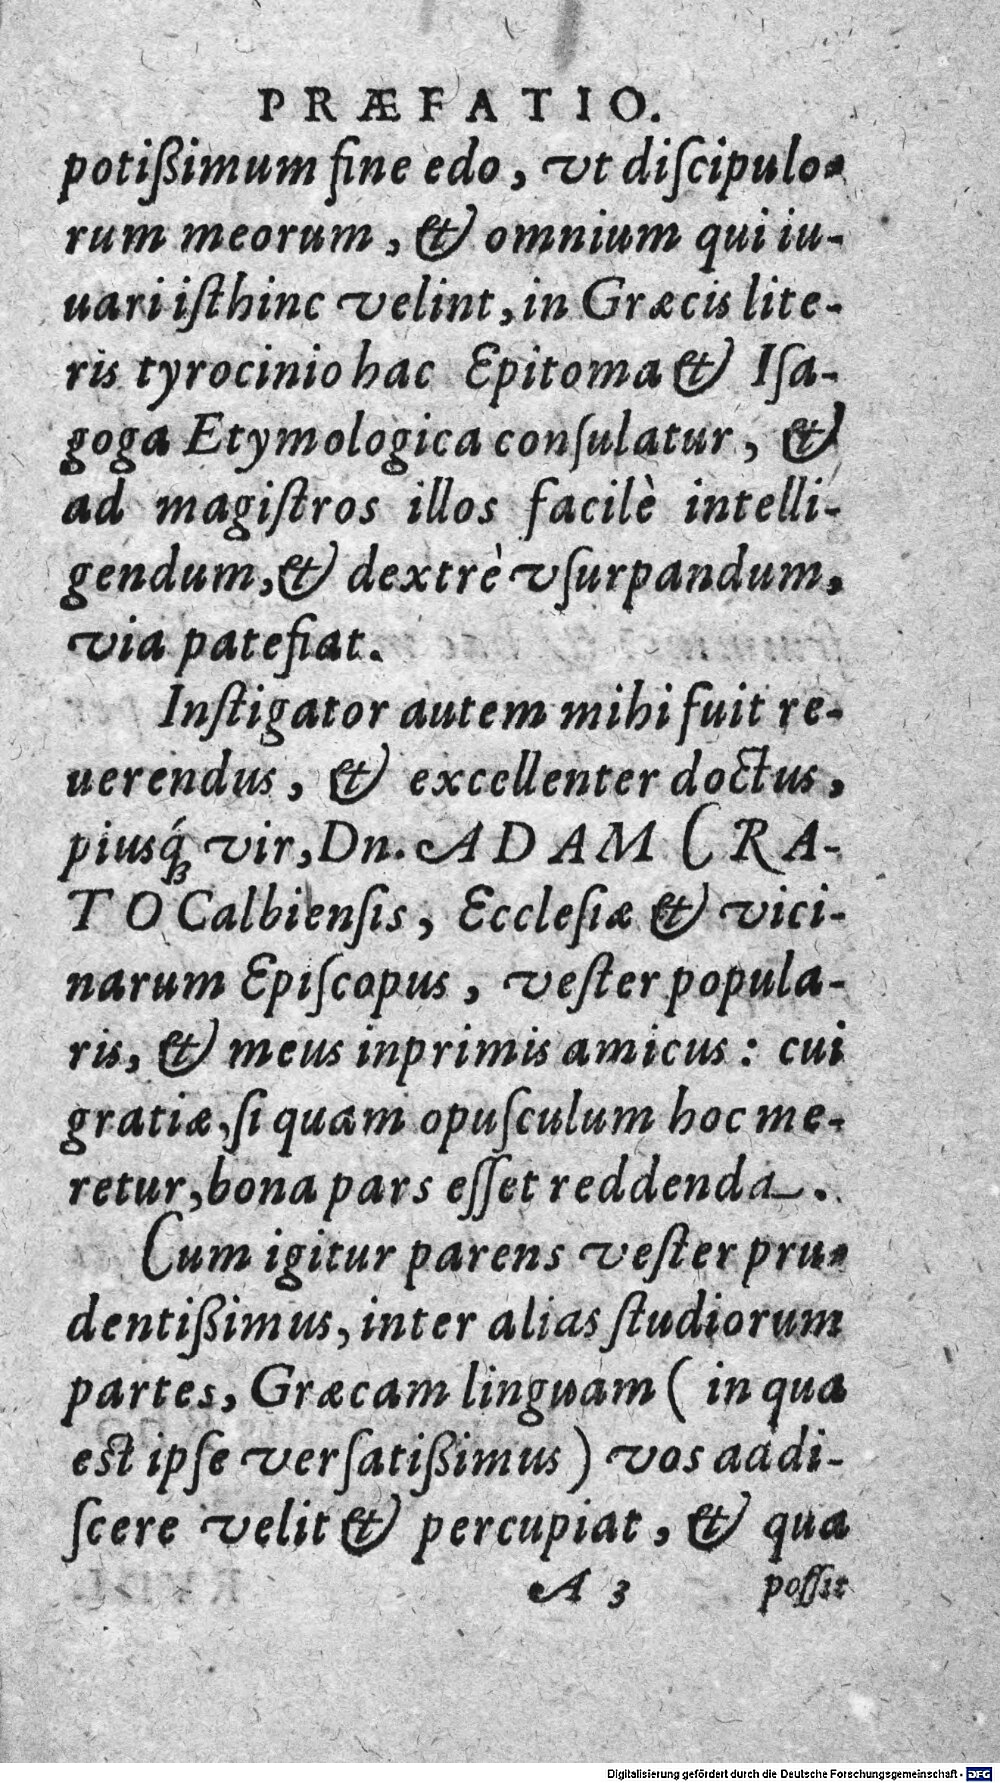 PRÆFATIO.
potißimum fine edo, vt diſcipulo-
rum meorum, & omnium qui iu-
uari iſthinc velint, in Græcis lite-
ris tyrocinio hac Epitoma & Iſa-
goga Etymologica conſulatur, &
ad magiſtros illos facilè intelli-
gendum, & dextrè vſurpandum,
via patefiat.
Inſtigator autem mihi fuit re-
uerendus, & excellenter doctus,
piusq́ꝫ vir, Dn. ADAM CRA-
TO Calbienſis, Eccleſiæ & vici-
narum Epiſcopus, veſter popula-
ris, & meus inprimis amicus: cui
gratiæ, ſi quam opuſculum hoc me-
retur, bona pars eſſet reddenda.
Cum igitur parens veſter pru-
dentißimus, inter alias ſtudiorum
partes, Græcam linguam (in qua
eſt ipſe verſatißimus) vos addi-
ſcere velit & percupiat, & qua
A 3 poſſit
Digitalisierung gefördert durch die Deutsche Forschungsgemeinschaft - DFG